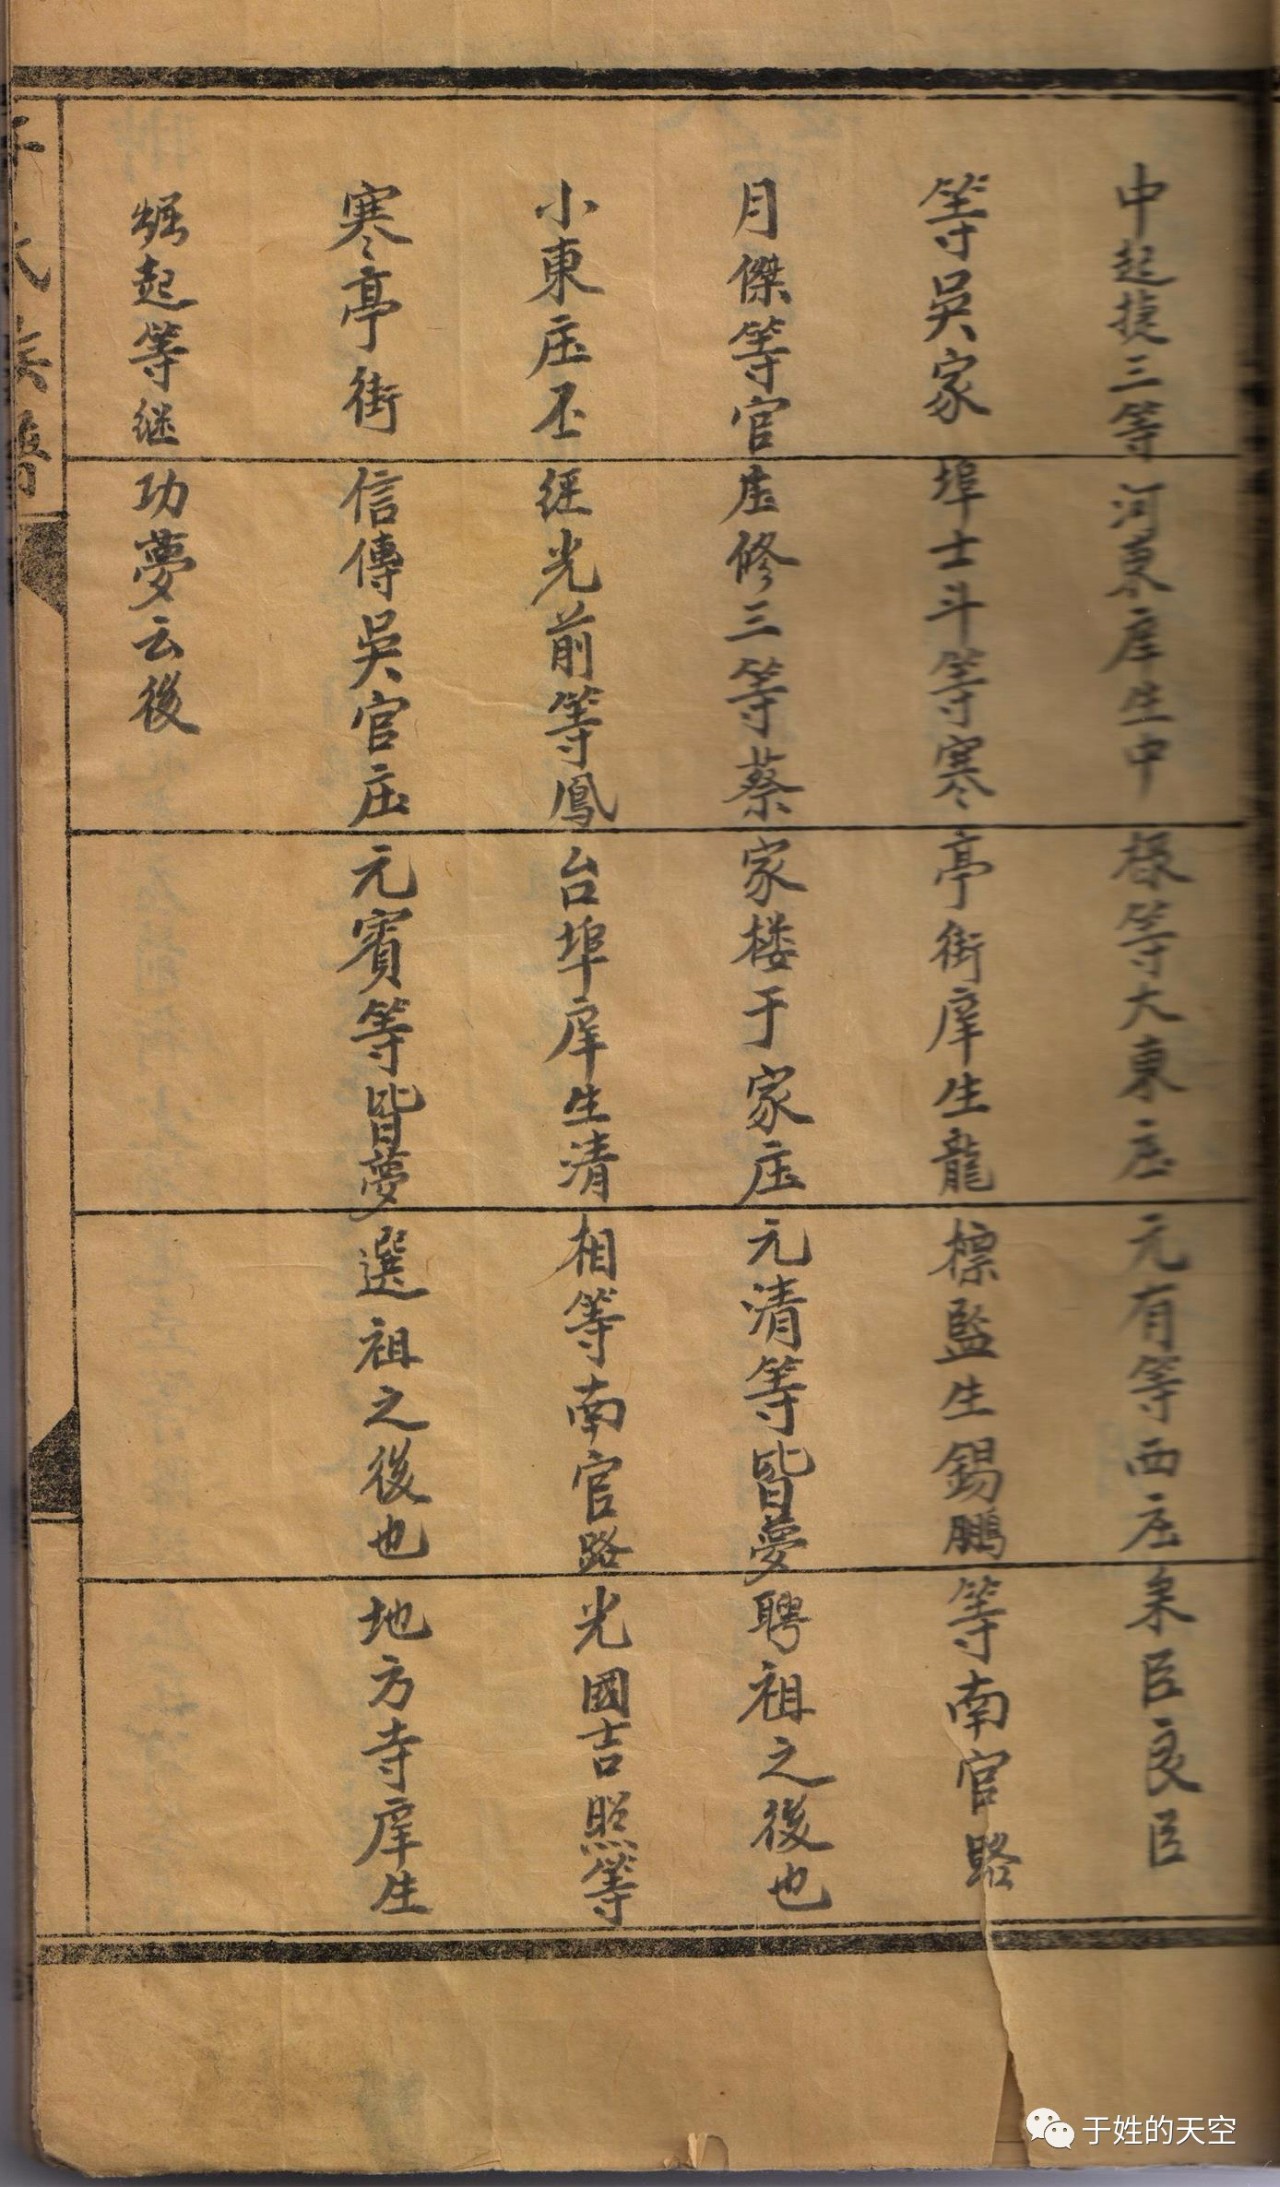 中起捷三等河東庠生中様等大東庒元有等西庒来臣良臣
等吳家埠士斗等寒亭街庠生龍標監生錫鵬等南官路
月傑等官庒修三等蔡家楼于家庒元清等皆夢聘祖之後也
小東庒丕經光前等鳳台埠庠生清相等南官路光國吉照等
寒亭街信傳吳官庒元賓等皆夢選祖之後也地方寺庠生
崛起等继功夢云後
于氏族譜
于姓的天空